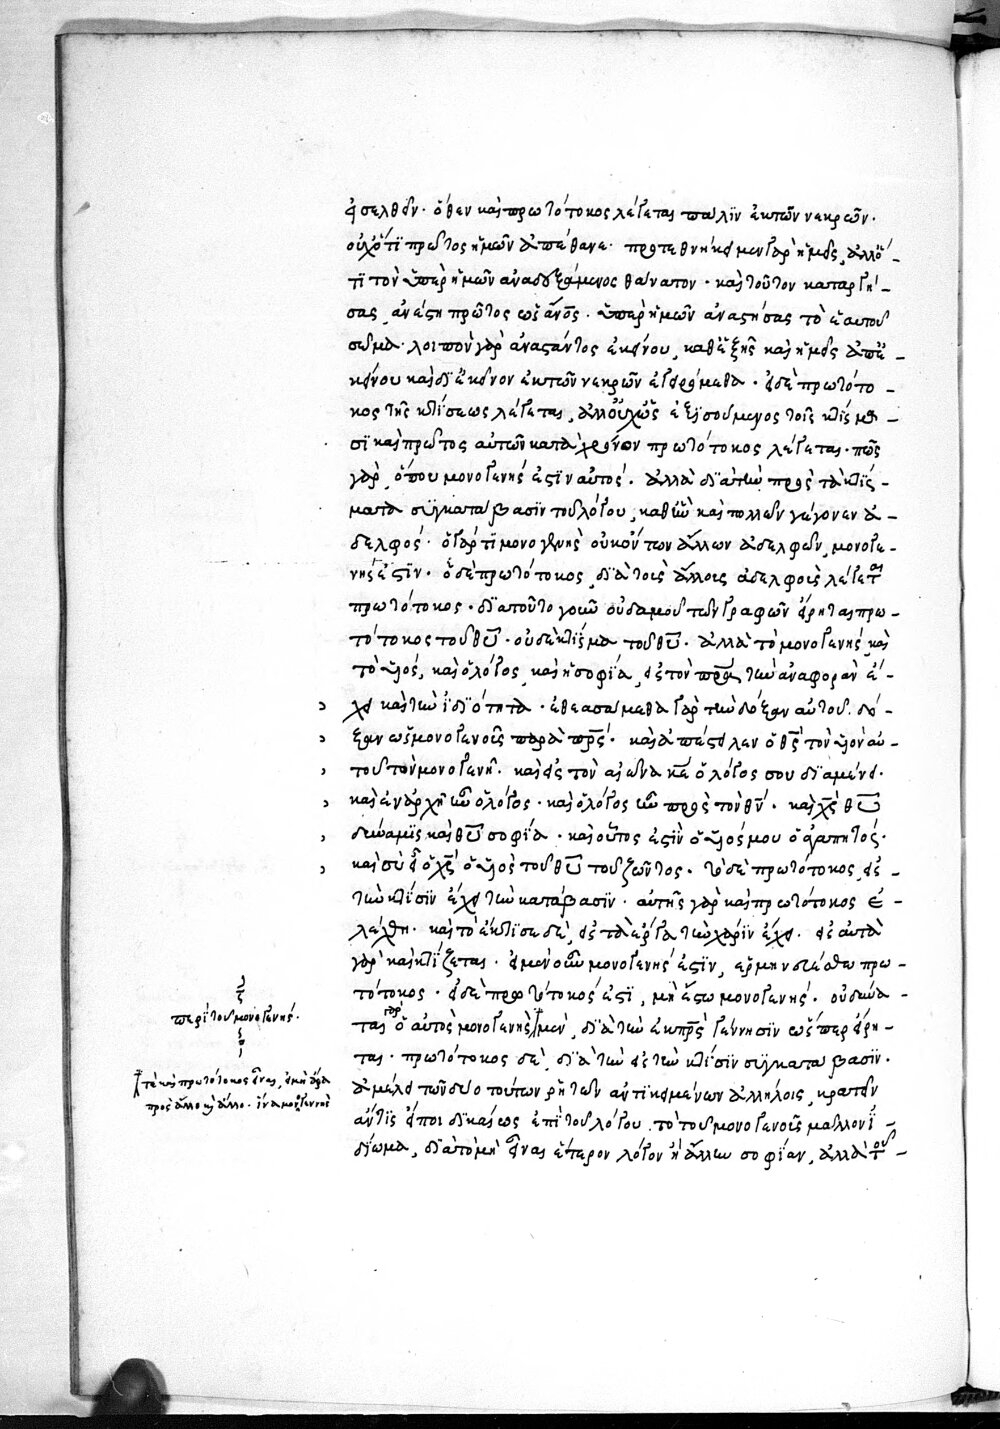 εἰσελθεῖν· ὅθεν καὶ πρωτότοκος λέγεται πάλϊν ἐκ τῶν νεκρῶν·
οὐχ ὅτϊ πρῶτος ἡμῶν ἀπέθανε· προτεθνήκειμεν γὰρ ἡμεῖς, ἀλλ' ὅ-
τϊ τὸν ὑπὲρ ἡμῶν ἀναδεξάμενος θάνατον· καὶ τοῦτον καταργή-
σας, ἀνέστη πρῶτος ὡς ἄνος· ὑπὲρ ἡμῶν ἀναστήσας τὸ ἑαυτοῦ
σῶμα· λοιπὸν γὰρ ἀναστάντος ἐκείνου, καθεξῆς καὶ ἡμεῖς ἀπ' ἐ-
κείνου καὶ δϊ' ἐκεῖνον ἐκ τῶν νεκρῶν ἐγειρόμεθα· εἰ δὲ πρωτότο-
κος τῆς κτίσεως λέγεται, ἀλλ' οὐχ ὡς ἐξισούμενος τοῖς κτίσμα-
σϊ καὶ πρῶτος αὐτῶν κατὰ χρόνον πρωτότοκος λέγεται· πῶς
γὰρ, ὅπου μονογενής ἐστϊν αὐτός· ἀλλὰ δϊὰ τὴν πρὸς τὰ κτίσ-
ματα συγκατάβασϊν τοῦ λόγου, καθ' ἣν καὶ πολλῶν γέγονεν ἀ-
δελφός· ὁ γάρ τϊ μονογενὴς οὐκ ὄντων ἄλλων ἀδελφῶν, μονογε-
νής ἐστϊν· ὁ δὲ πρωτότοκος, δϊὰ τοὺς ἄλλους ἀδελφοὺς λέγεται
πρωτότοκος· δϊὰ τοῦτο γοῦν οὐδαμοῦ τῶν γραφῶν εἴρηται πρω-
τότοκος τοῦ θῦ· οὐδὲ κτίσμα τοῦ θῦ· ἀλλὰ τὸ μονογενής, καὶ
τὸ υἱός, καὶ ὁ λόγος, καὶ ἡ σοφία, εἰς τὸν πρα τὴν ἀναφορὰν ἔ-
χει καὶ τὴν ἰδϊότητα· ἐθεασάμεθα γὰρ τὴν δόξαν αὐτοῦ. δό-
ξαν ὡς μονογενοῦς παρὰ πρς· καὶ ἀπέστειλεν ὁ θς τὸν υἱὸν αὐ-
τοῦ τὸν μονογενῆ· καὶ εἰς τὸν αἰῶνα κε ὁ λόγος σου δϊαμένει·
καὶ ἐν ἀρχῇ ἦν ὁ λόγος· καὶ ὁ λόγος ἦν πρὸς τὸν θν· καὶ χς θῦ
δύναμϊς καὶ θῦ σοφία· καὶ οὗτος ἐστϊν ὁ υἱός μου ὁ ἀγαπητός·
καὶ σὺ εἶ ὁ χς ὁ υἱὸς τοῦ θῦ τοῦ ζῶντος· τὸ δὲ πρωτότοκος, εἰς
τὴν κτίσϊν ἔχει τὴν κατάβασϊν· αὐτῆς γὰρ καὶ πρωτότοκος ἐ-
λέχθη· καὶ τὸ ἔκτϊσε δὲ, εἰς τὰ ἔργα τὴν χάρϊν ἔχει· εἰς αὐτὰ
γὰρ καὶ κτίζεται· εἰ μὲν οὖν μονογενής ἐστϊν, ἑρμηνευέσθω πρω-
τότοκος· εἰ δὲ πρωτότοκός ἐστϊ, μὴ ἔστω μονογενής· οὐ δύνα-
ται γὰρ ὁ αὐτὸς μονογενὴς μὲν, δϊὰ τὴν ἐκ πρς γέννησϊν ὥσπερ εἴρη-
ται· πρωτότοκος δὲ, δϊὰ τὴν εἰς τὴν κτίσϊν συγκατάβασϊν·
ἀμέλει τῶν δύο τούτων ῥητῶν ἀντϊκειμένων ἀλλήλοις, κρατεῖν
ἄν τϊς εἴποι δϊκαίως ἐπὶ τοῦ λόγου. τὸ τοῦ μονογενοῦς μᾶλλον ἰ-
δίωμα, δϊὰ τὸ μὴ εἶναι ἕτερον λόγον ἢ ἄλλην σοφίαν, ἀλλὰ τοῦ-
περὶ τοῦ μονογενής·
τὲ καὶ πρωτότοκος εἶναι, εἰ μὴ ἄρα
πρὸς ἄλλο καὶ ἄλλο· ἵνα μονογενὴς